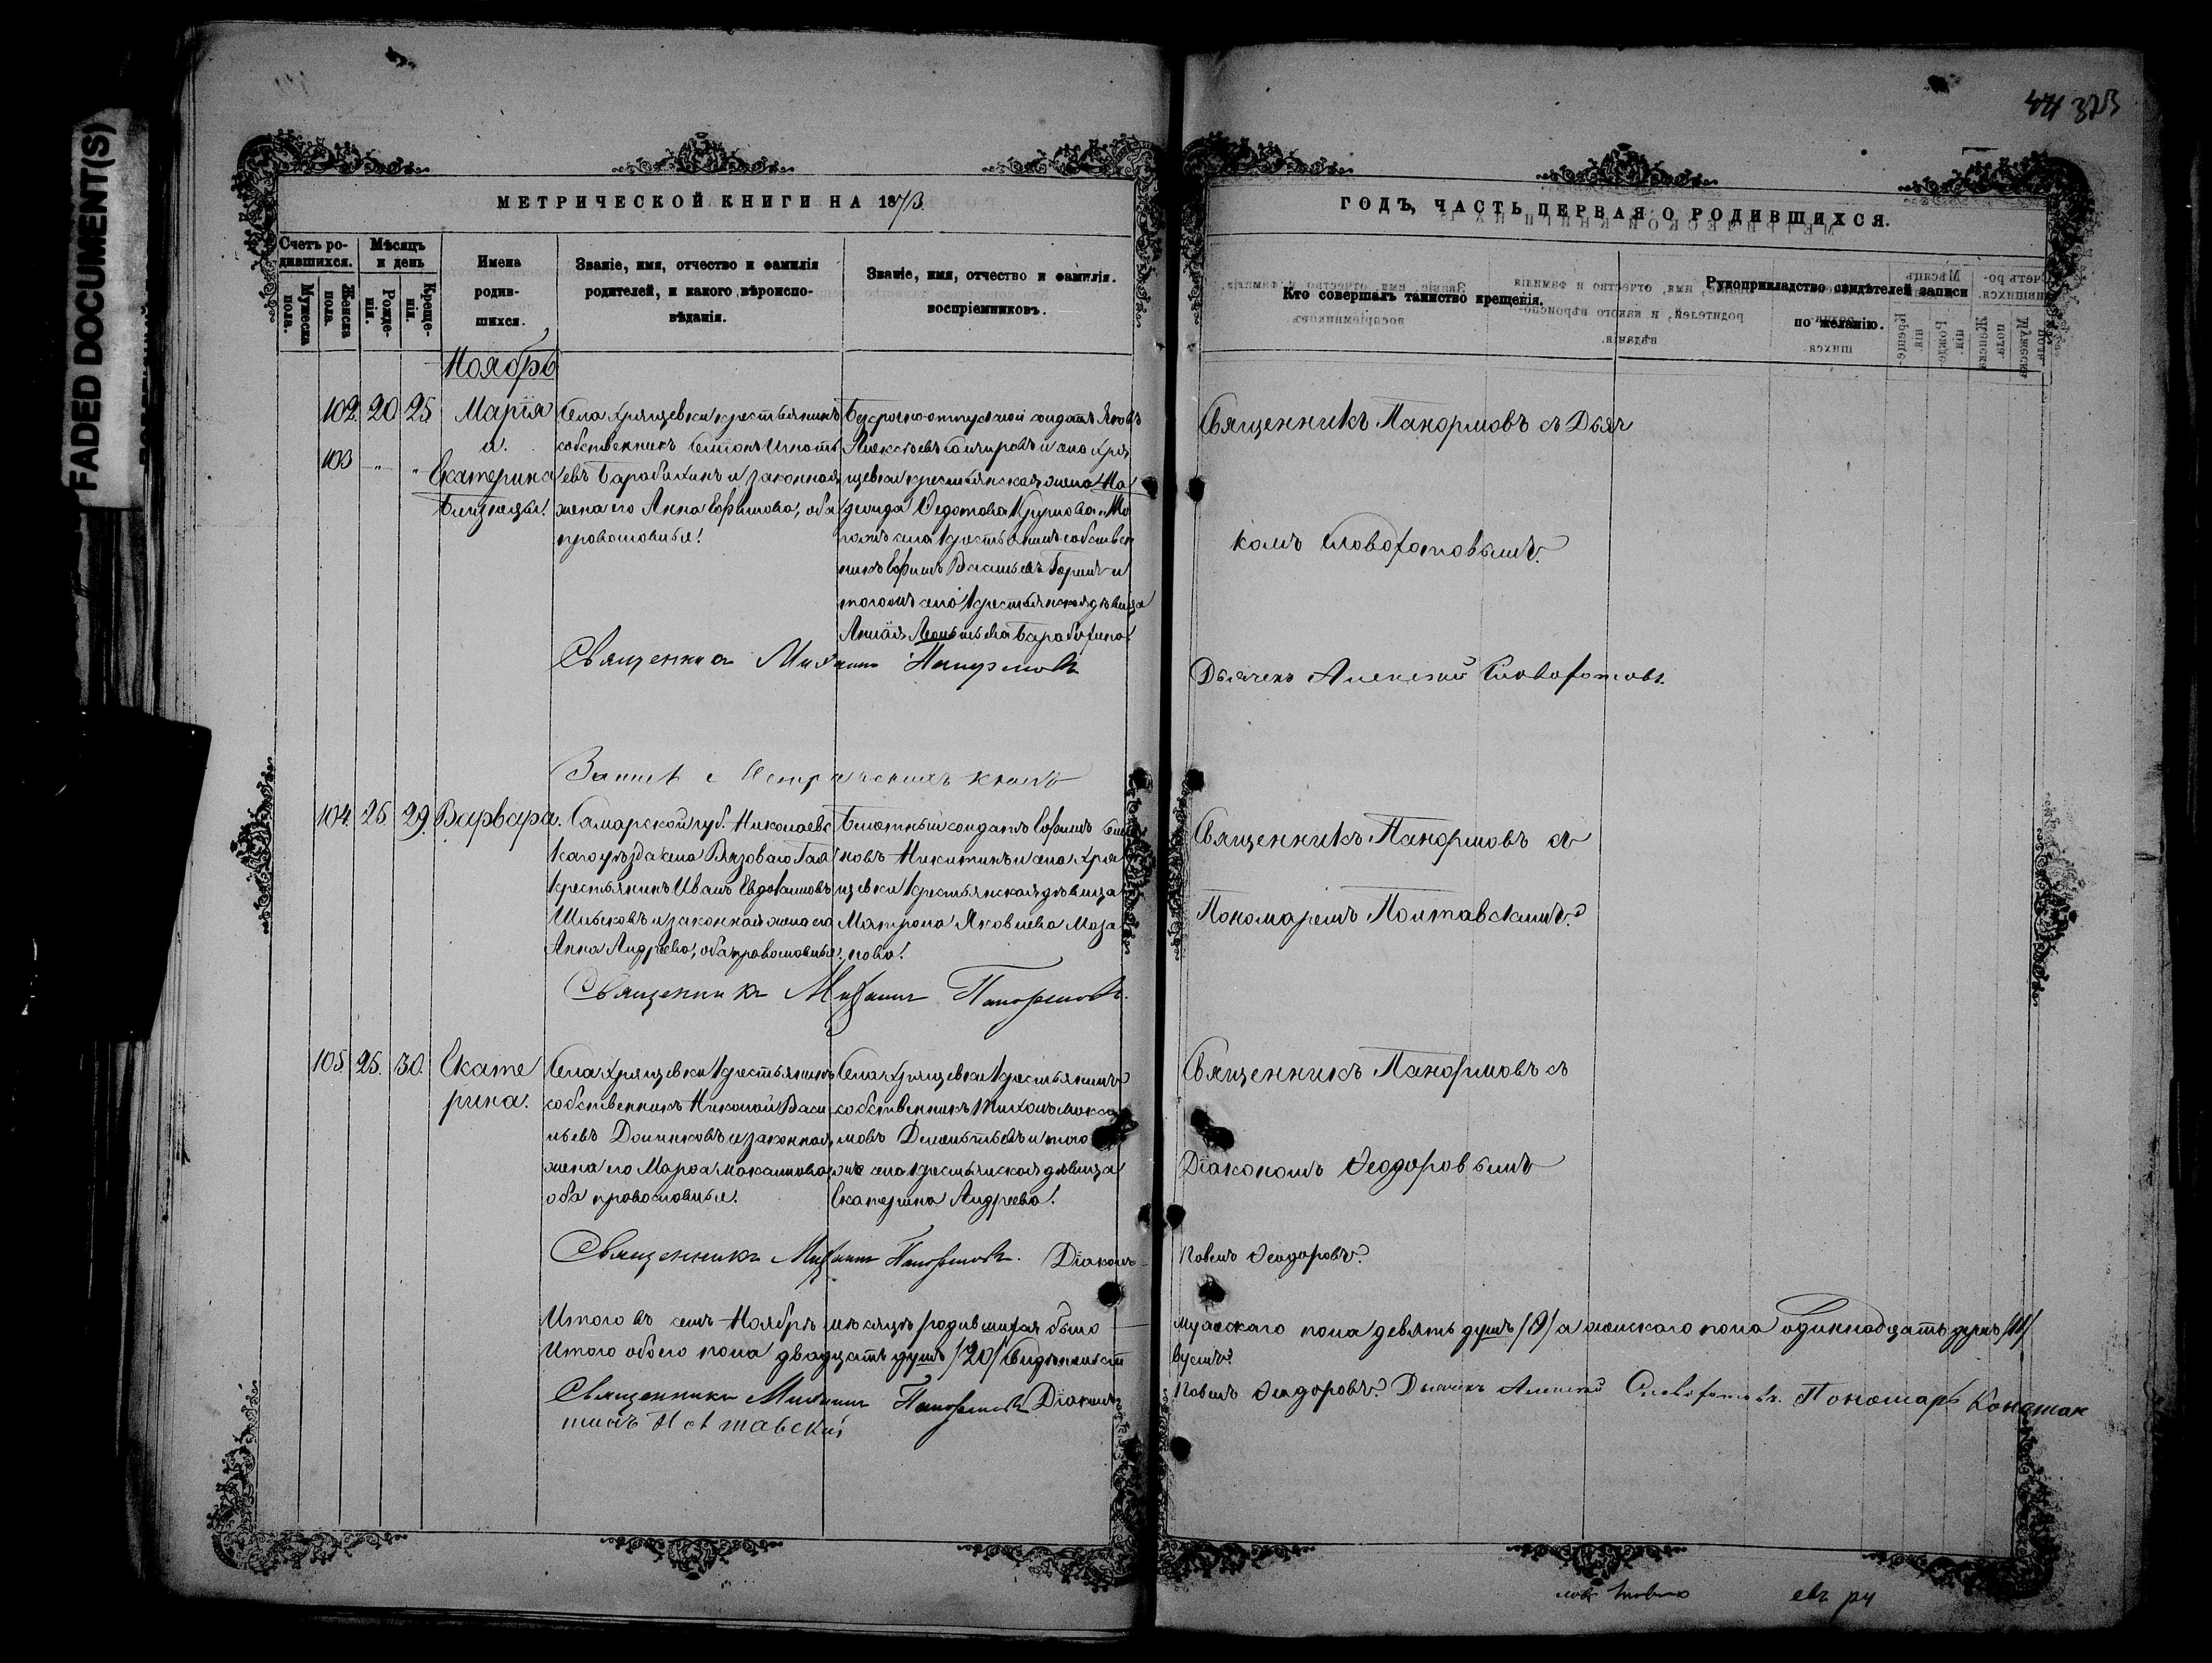 FADED DOCUMENT(S)
44 373
МЕТРИЧЕСКОЙ КНИГИ НА 1873
ГОДЪ, ЧАСТЬ ПЕРВАЯ О РОДИВШИХСЯ.
Счетъ родившихся.
Мужеска пола.
Женска пола.
Мѣсяцъ и день
Рожденія.
Крещенія.
Имена родившихся.
Званіе, имя, отчество и фамилія родителей, и какого вѣроисповѣданія.
Званіе, имя, отчество и фамилія. воспріемниковъ.
Кто совершалъ таинство крещенія.
Рукоприкладство свидѣтелей записи по желанію.
Ноябрь
102. 20 25 Марія
и
103 " " Екатерина
близнецы.
Села Хрящевки крестьянинъ
собственникъ Семіонъ Игнать
евъ Барабихинъ и законная
жена его Анна Ефимова, оба
православные.
Безсрочноотпускной солдатъ Яковъ
Алексѣевъ и села Хря
щевки крестьянская жена На
дежда Федотова
того же села крестьянинъ собствен
никъ Ефимъ Васильевъ и
того же села крестьянская дѣвица
Священникъ Панормовъ съ Дьяч
комъ Словохотовымъ.
Священникъ Михаилъ Панормовъ
Дьячекъ Алексѣй Словохотовъ.
104. 25 29. Варвара.
Самарской губ. Николаевс
каго уѣзда села Вязоваго Гая
крестьянинъ Иванъ Евдокимовъ
и законная жена его
Анна Андреева, оба православные.
Билетный солдатъ Ефимъ Семе
новъ Никитинъ и села Хря
щевки крестьянская дѣвица
Матрона Яковлева Маза
нова.
Священникъ Панормовъ съ
Пономаремъ Полтавскимъ.
Священникъ Михаилъ Панормовъ.
105. 25. 30. Екате
рина.
Села Хрящевки крестьянинъ
собственникъ Николай Васи
льевъ и законная
жена его Марѳа Максимова
оба православные.
Села Хрящевки крестьянинъ
собственникъ Тихонъ Макси
мовъ и того
же села крестьянская дѣвица
Екатерина Андреева.
Священникъ Панормовъ съ
Діакономъ Ѳеодоровымъ
Священникъ Михаилъ Панормовъ. Діаконъ
Павелъ Ѳеодоровъ.
Итого въ семъ Ноябрѣ мѣсяцѣ родившихся было мужескаго пола девять душъ /9/ а женскаго пола одиннадцать душъ /11/
Итого обоего пола двадцать душъ /20/
Священникъ Михаилъ Панормовъ Діаконъ Павелъ Ѳеодоровъ. Дьячекъ Алексѣй Словохотовъ. Пономарь Констан
тинъ Полтавскій